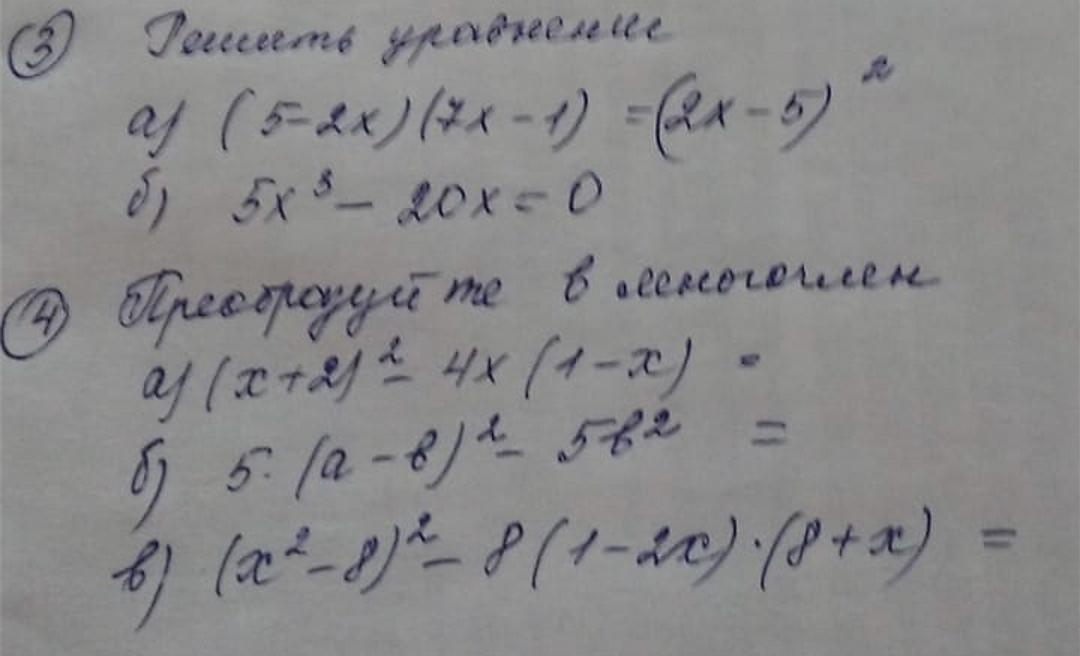 ③ Решить уравнение
а) (5-2x)(7x-1) =(2x-5)²
б) 5x³- 20x=0
④ Преобразуйте в многочлен
а) (x+2)²- 4x(1-x) =
б) 5·(a-b)²- 5b² =
в) (x²-8)²- 8(1-2x)·(8+x) =